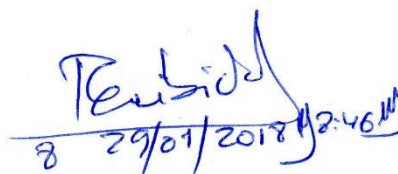 Recibido
8 29/01/2018 8:46